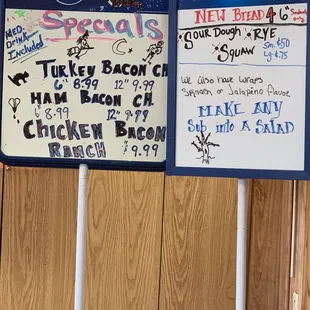 Specials
MED. DRINK Included
Turkey Bacon CH
6" 8.99 12" 9.99
Ham Bacon CH.
6" 8.99 12" 9.99
Chicken Bacon
Ranch 9.99
NEW BREAD 4 6"
Sour Dough RYE
Squaw
Sm. $.50
Lg $.75
We Also Have Wraps
Spinach or Jalapeño Flavor
MAKE ANY
Sub into A SALAD